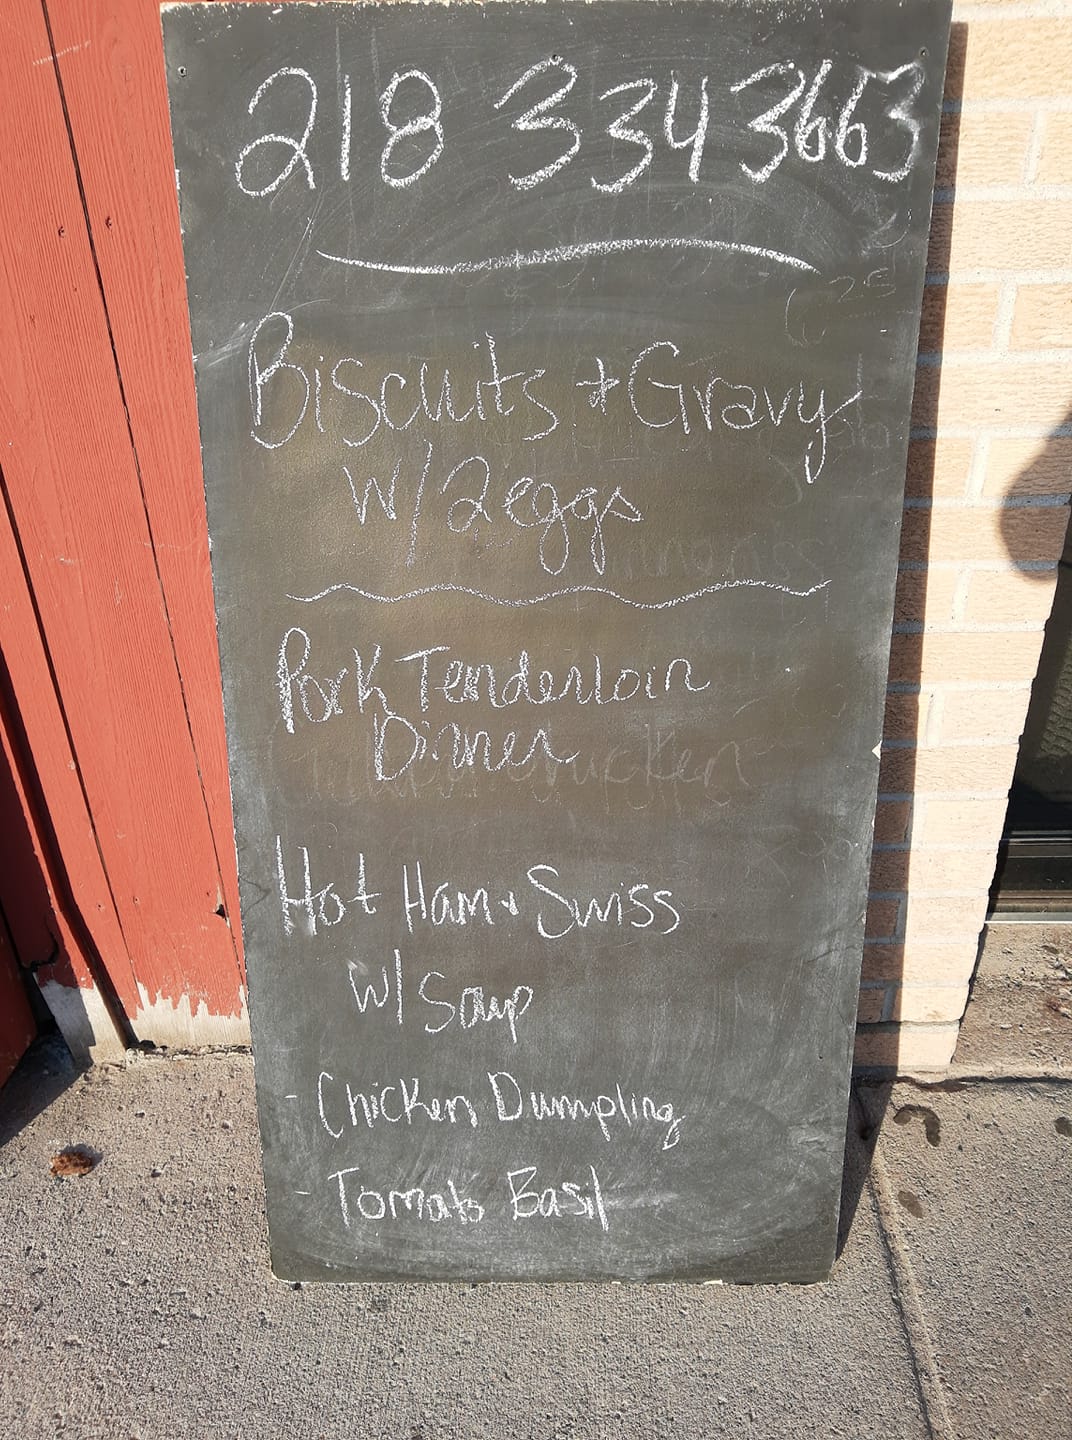 218 334 3663
Biscuits + Gravy
w/ 2 eggs
Pork Tenderloin
Dinner
Hot Ham + Swiss
w/ Soup
- Chicken Dumpling
- Tomato Basil